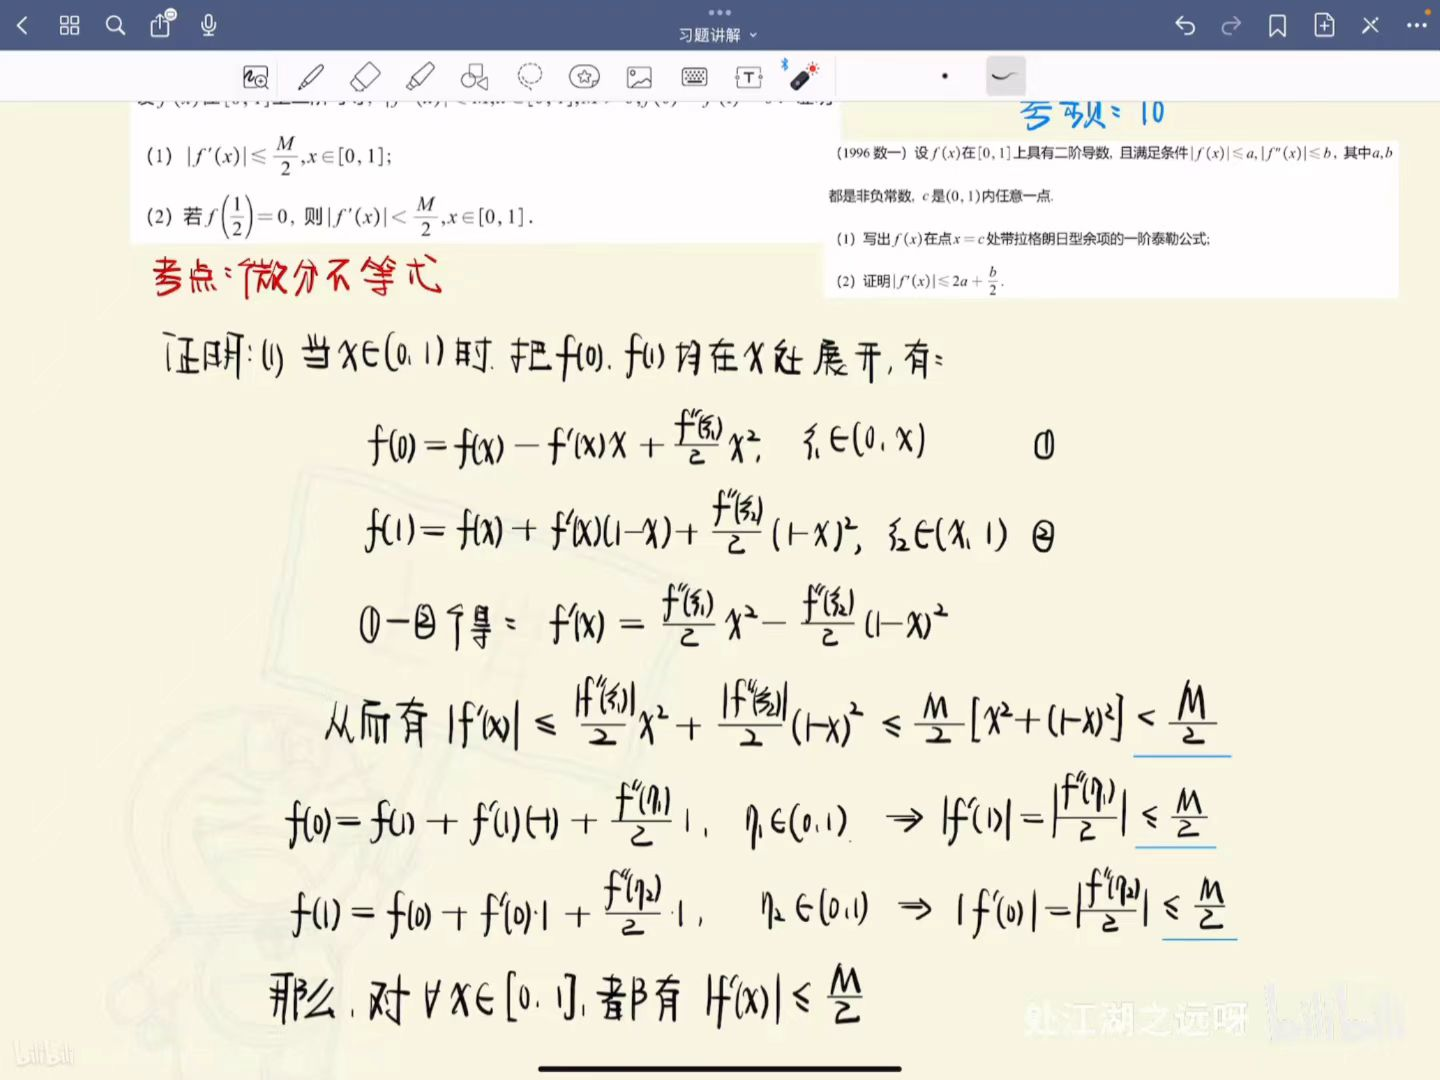 习题讲解
(1) |f′(x)|≤M/2,x∈[0,1];
(2) 若f(1/2)=0, 则|f′(x)|<M/2,x∈[0,1].
考点:微分不等式
10
(1996 数一) 设f(x)在[0,1]上具有二阶导数, 且满足条件|f(x)|≤a,|f″(x)|≤b, 其中a,b
都是非负常数, c是(0,1)内任意一点.
(1) 写出f(x)在点x=c处带拉格朗日型余项的一阶泰勒公式;
(2) 证明|f′(x)|≤2a+b/2.
证明:(1) 当x∈(0,1)时.把f(0).f(1)均在x处展开,有:
f(0)=f(x)-f′(x)x+f″(ξ₁)/2 x², ξ₁∈(0,x) ①
f(1)=f(x)+f′(x)(1-x)+f″(ξ₂)/2 (1-x)², ξ₂∈(x,1) ②
①-②得: f′(x)=f″(ξ₁)/2 x²-f″(ξ₂)/2 (1-x)²
从而有 |f′(x)|≤|f″(ξ₁)|/2 x²+|f″(ξ₂)|/2 (1-x)²≤M/2[x²+(1-x)²]<M/2
f(0)=f(1)+f′(1)(-1)+f″(η₁)/2·1, η₁∈(0,1). ⇒|f′(1)|=|f″(η₁)/2|≤M/2
f(1)=f(0)+f′(0)·1+f″(η₂)/2·1, η₂∈(0,1) ⇒|f′(0)|=|f″(η₂)/2|≤M/2
那么,对∀x∈[0,1],都有 |f′(x)|≤M/2
处江湖之远呀 bilibili
bilibili